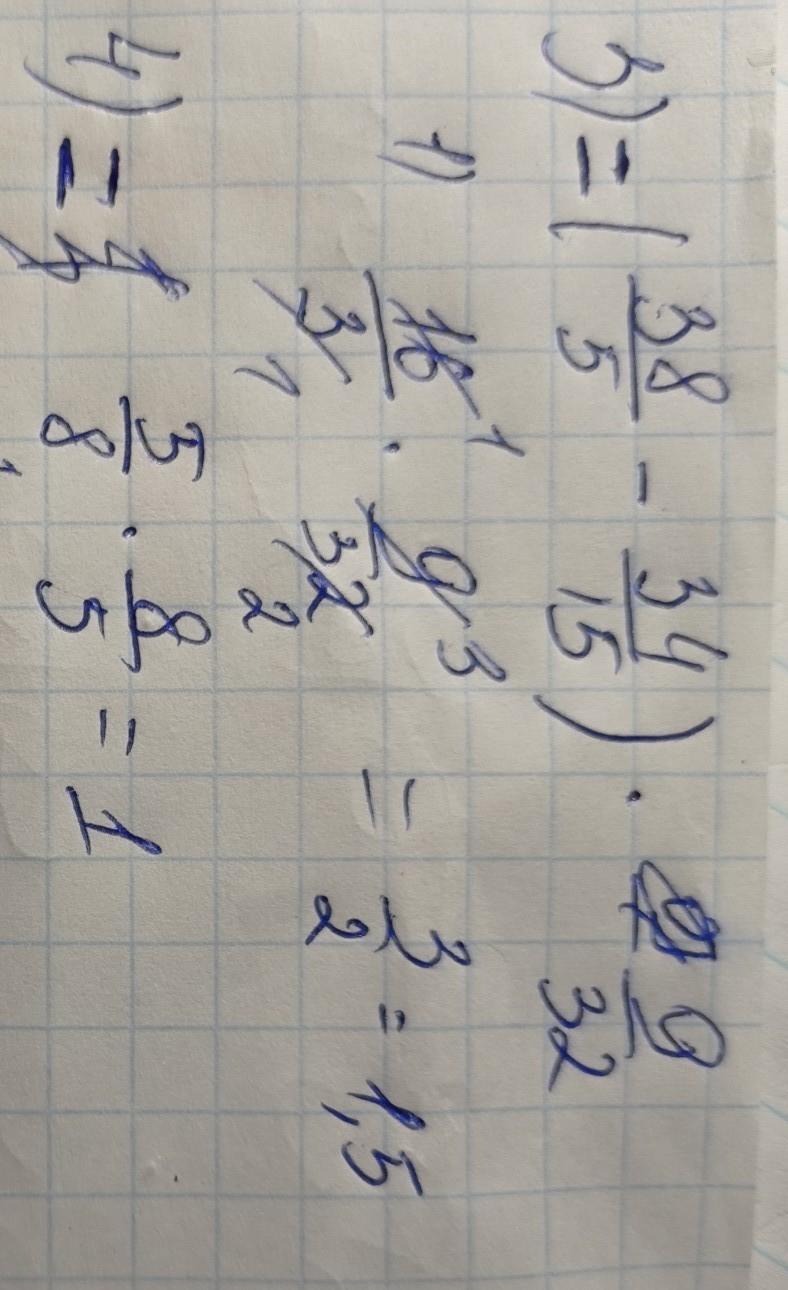 3) = ( 38/5 - 34/15 ) · 9/32
1) 16/3 · 9/32 = 3/2 = 1,5
4) = 5/8 · 8/5 = 1